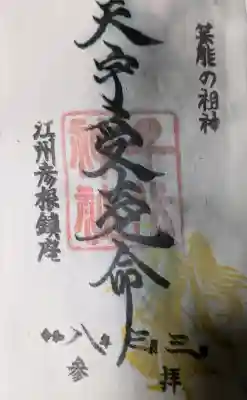 芸能の祖神
天宇受売命
江州彦根鎮座
八年三月三日
参拝